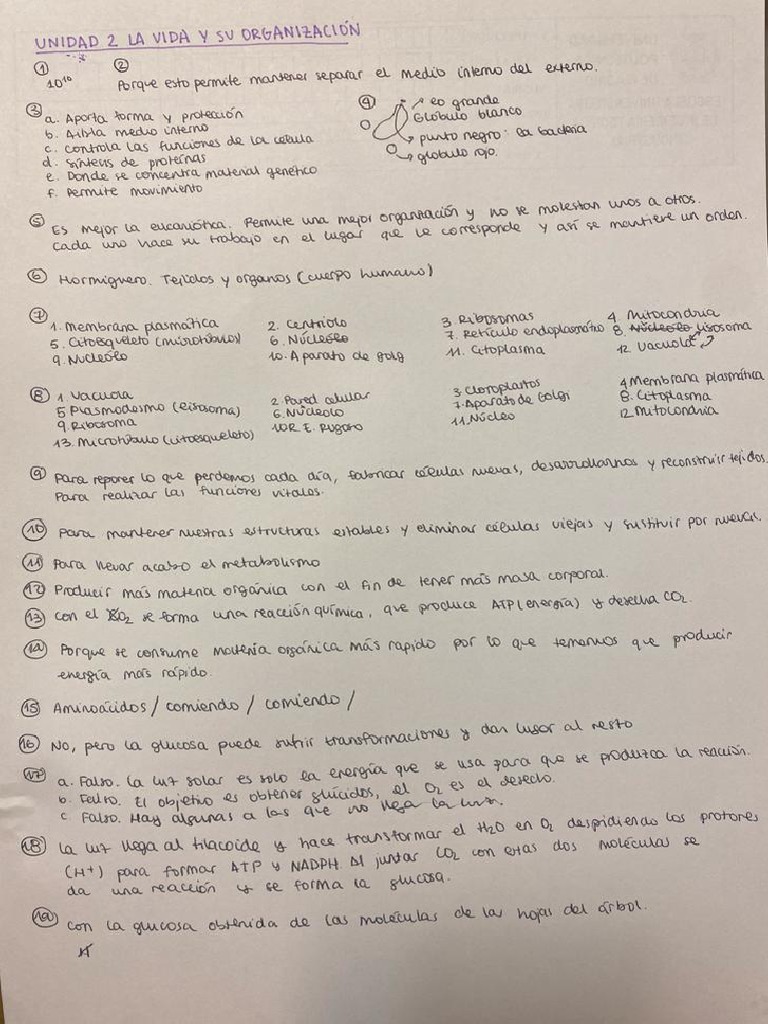 UNIDAD 2 LA VIDA Y SU ORGANIZACIÓN
① 10¹⁰
② Porque esto permite mantener separar el medio interno del externo.
③ a. Aporta forma y protección
b. Aísla medio interno
c. controla las funciones de la célula
d. síntesis de proteínas
e. Donde se concentra material genético
f. Permite movimiento
④ lo grande
Glóbulo blanco
punto negro: la bacteria
glóbulo rojo.
⑤ Es mejor la eucariótica. Permite una mejor organización y no se molestan unos a otros.
cada uno hace su trabajo en el lugar que le corresponde y así se mantiene un orden.
⑥ Hormiguero. Tejidos y organos (cuerpo humano)
⑦ 1. Membrana plasmática 2. Centriolo 3. Ribosomas 4. Mitocondria
5. Citoesqueleto (microtúbulo) 6. Núcleo 7. Retículo endoplasmático 8. Nucleolo lisosoma
9. Nucleolo 10. Aparato de golgi 11. Citoplasma 12. Vacuola
⑧ 1. Vacuola 2. Pared celular 3 Cloroplastos 4 Membrana plasmática
5 Plasmodesmo 6. Nucleolo 7. Aparato de Golgi 8. Citoplasma
9. Ribosoma 10 R.E. Rugoso 11. Núcleo 12 Mitocondria
13. Microtúbulo (citoesqueleto)
⑨ Para reponer lo que perdemos cada día, fabricar células nuevas, desarrollarnos y reconstruir tejidos.
Para realizar las funciones vitales.
⑩ Para mantener nuestras estructuras estables y eliminar células viejas y sustituir por nuevas.
⑪ Para llevar acabo el metabolismo
⑫ Producir más materia orgánica con el fin de tener más masa corporal.
⑬ con el O₂ se forma una reacción química, que produce ATP (energía) y desecha CO₂.
⑭ Porque se consume materia orgánica más rapido por lo que tenemos que producir
energía más rápido.
⑮ Aminoácidos / comiendo / comiendo /
⑯ No, pero la glucosa puede sufrir transformaciones y dan lugar al resto
⑰ a. Falso. La luz solar es solo la energía que se usa para que se produzca la reacción.
b. Falso. El objetivo es obtener glúcidos, el O₂ es el desecho.
c. Falso. Hay algunas a las que no llega la luz.
⑱ La luz llega al tilacoide y hace transformar el H₂O en O₂ despidiendo los protones
(H+) para formar ATP y NADPH. Al juntar CO₂ con estas dos moléculas se
da una reacción y se forma la glucosa.
⑲ con la glucosa obtenida de las moléculas de las hojas del árbol.